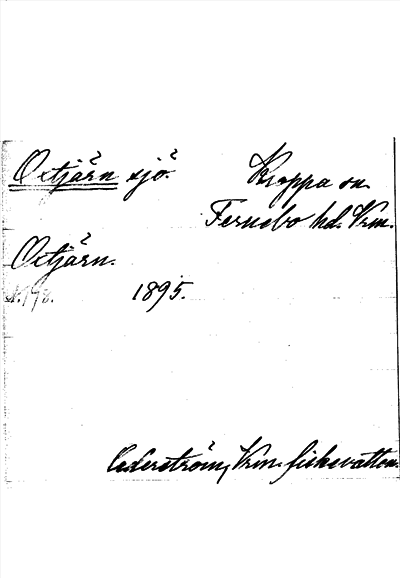 Oxtjärn sjö.
Kroppa sn.
Fernebo hd. Vrm.
Oxtjärn.
1895.
Cederström, Vrm. fiskevatten.